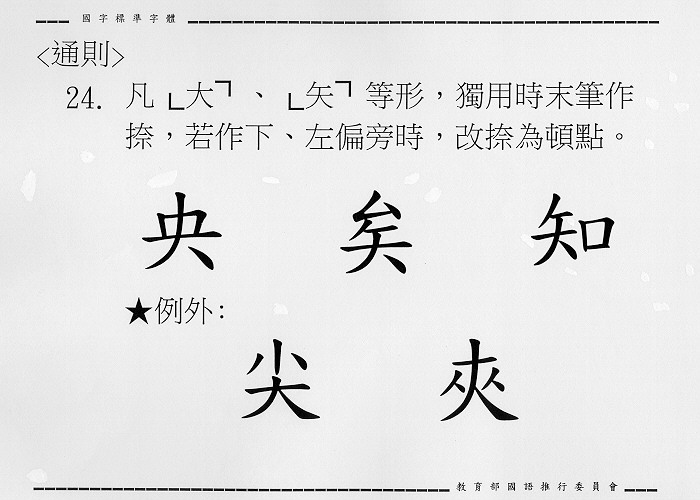 國字標準字體
<通則>
24. 凡「大」、「矢」等形，獨用時末筆作
捺，若作下、左偏旁時，改捺為頓點。
央 矣 知
★例外：
尖 夾
教育部國語推行委員會